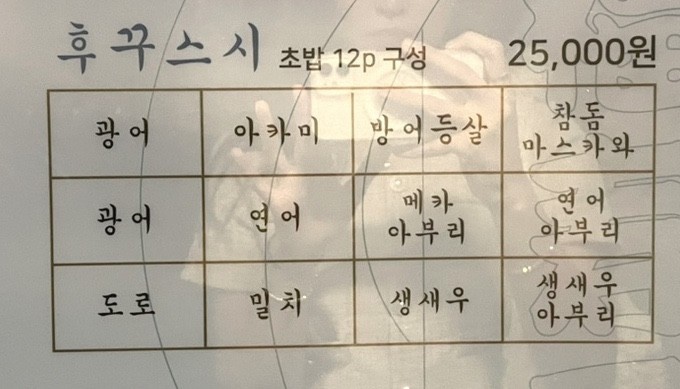 후꾸스시 초밥 12p 구성 25,000원
광어 아카미 방어등살 참돔
마스카와
광어 연어 메카
아부리 연어
아부리
도로 밀치 생새우 생새우
아부리